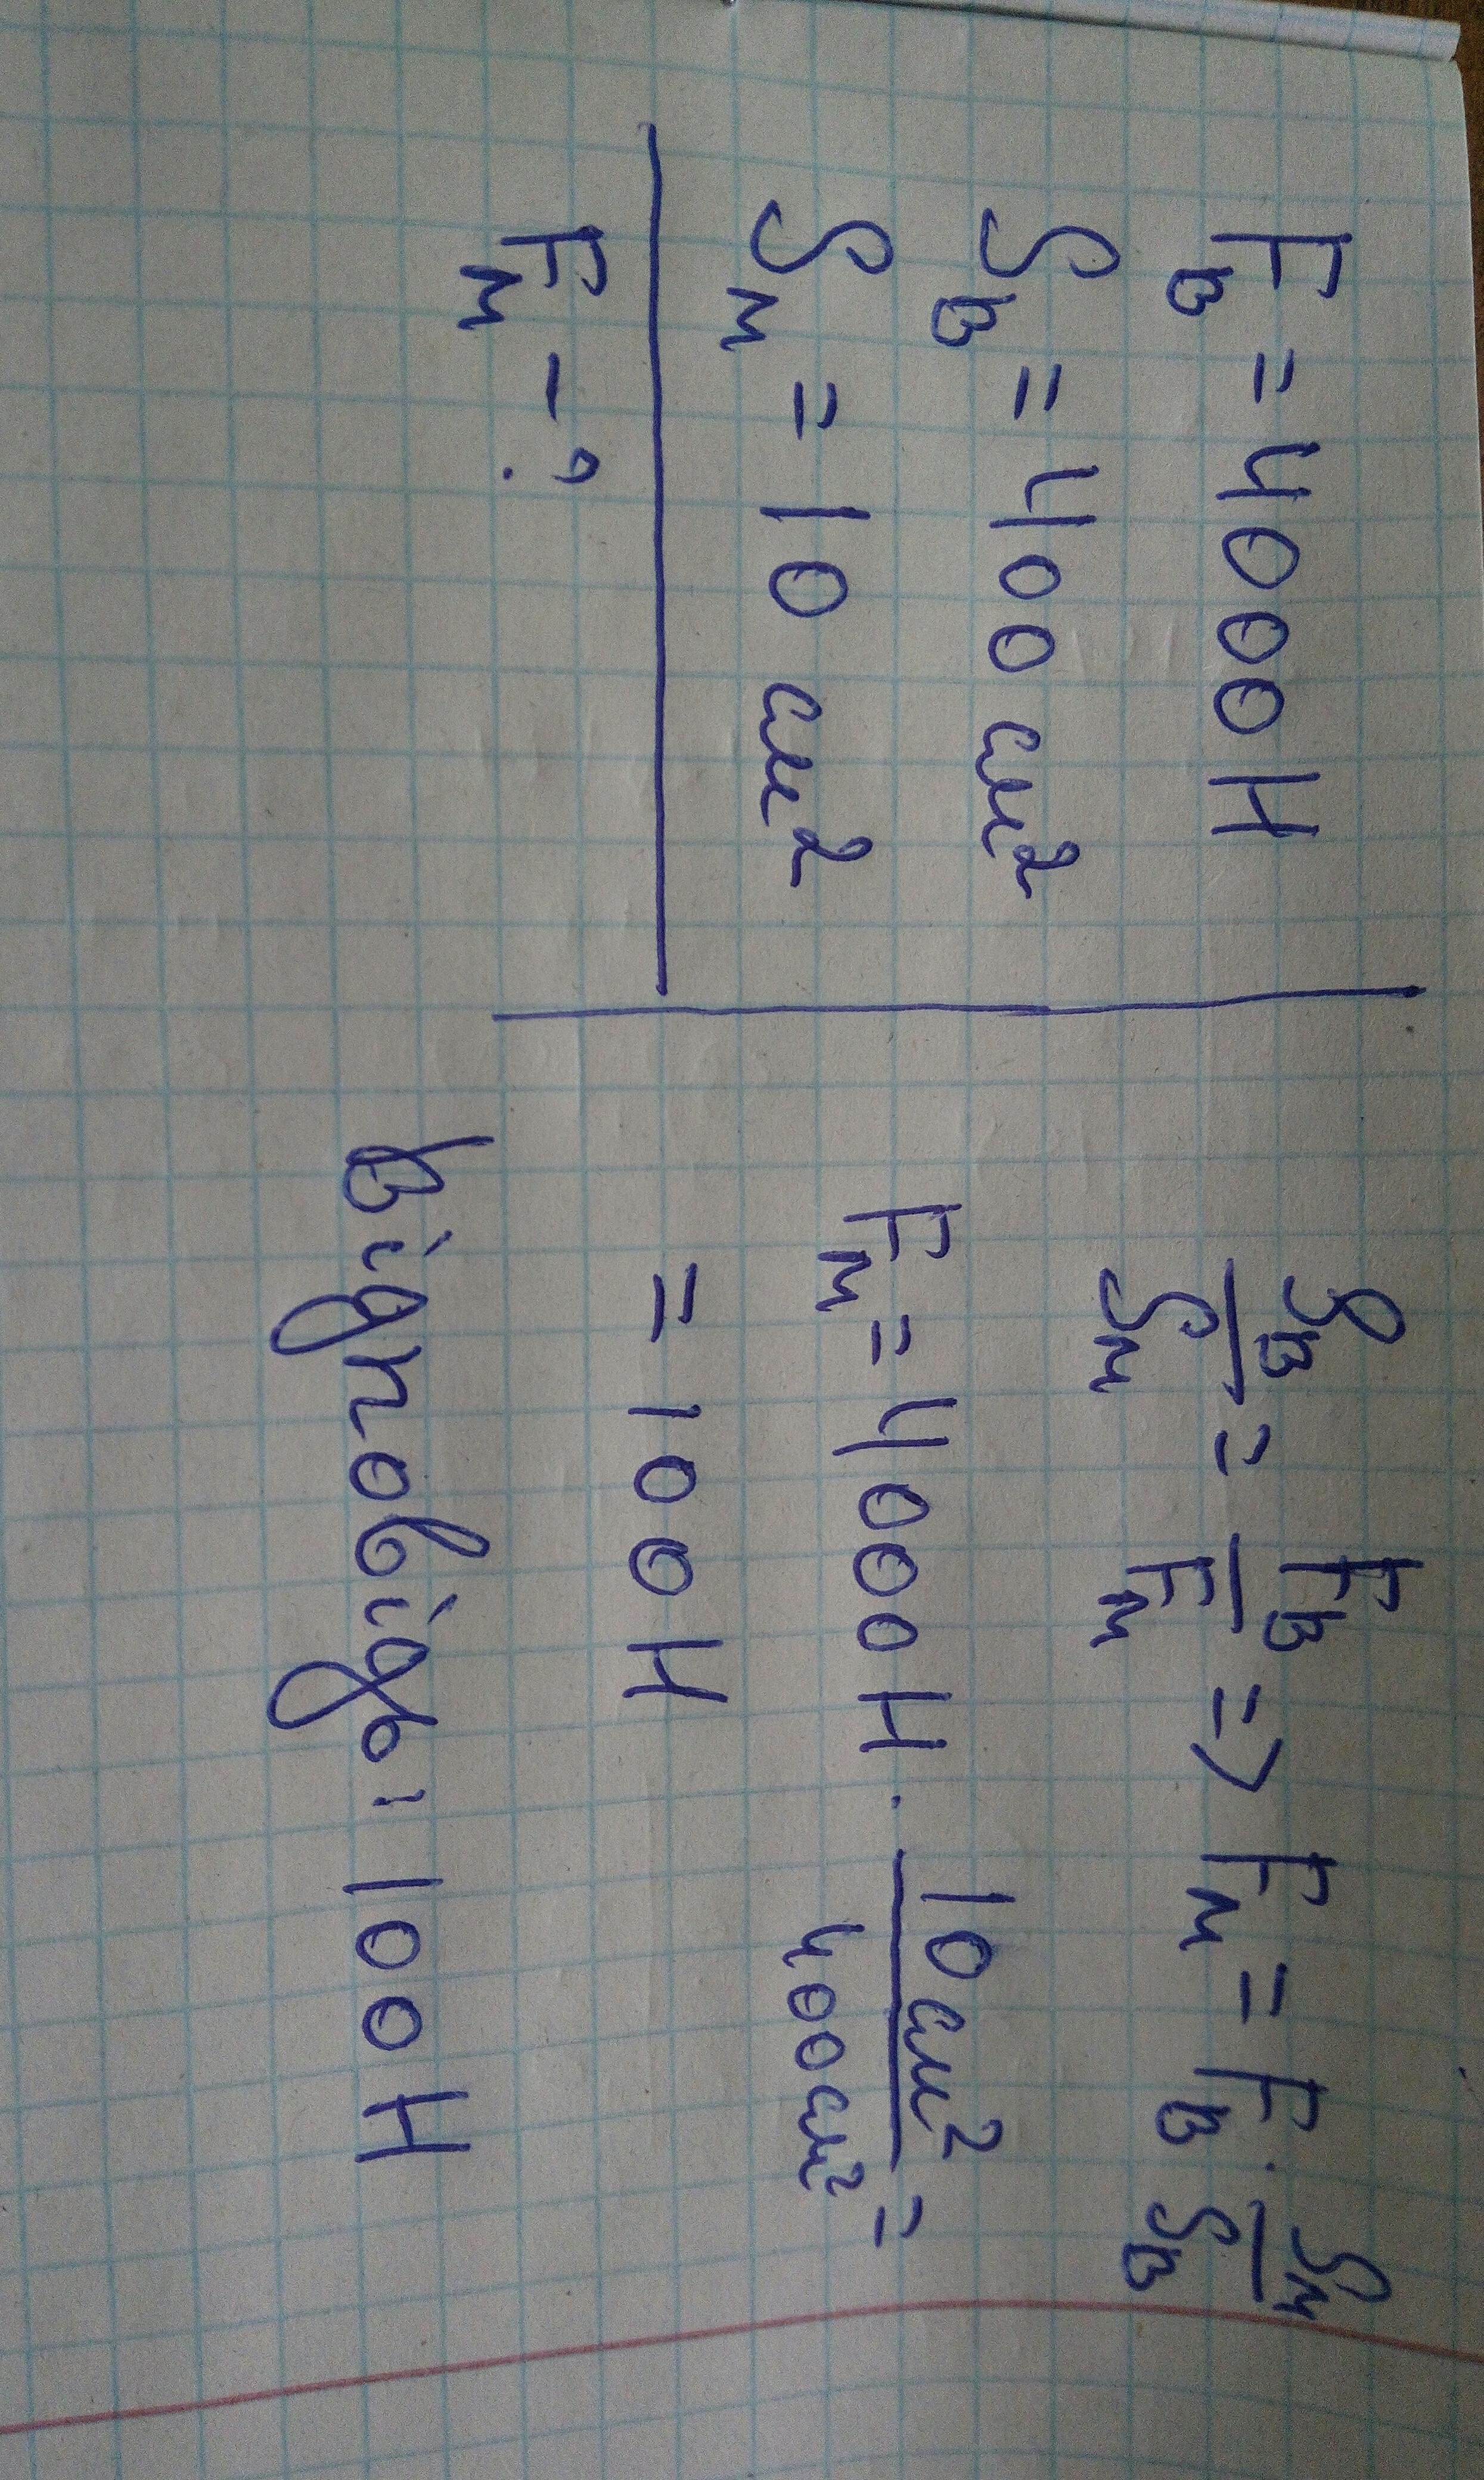 Fв = 4000Н
Sв = 400 см²
Sм = 10 см²
Fм - ?
Sв/Sм = Fв/Fм => Fм = Fв · Sм/Sв
Fм = 4000Н · 10 см²/400 см² =
= 100Н
Відповідь: 100Н